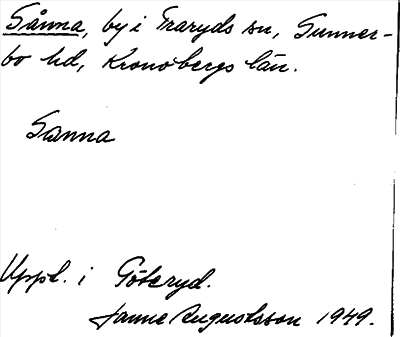 Sånna, by i Traryds sn, Sunner-
bo hd, Kronobergs län.
Sanna
Uppt. i Göteryd.
Janne Augustsson 1949.